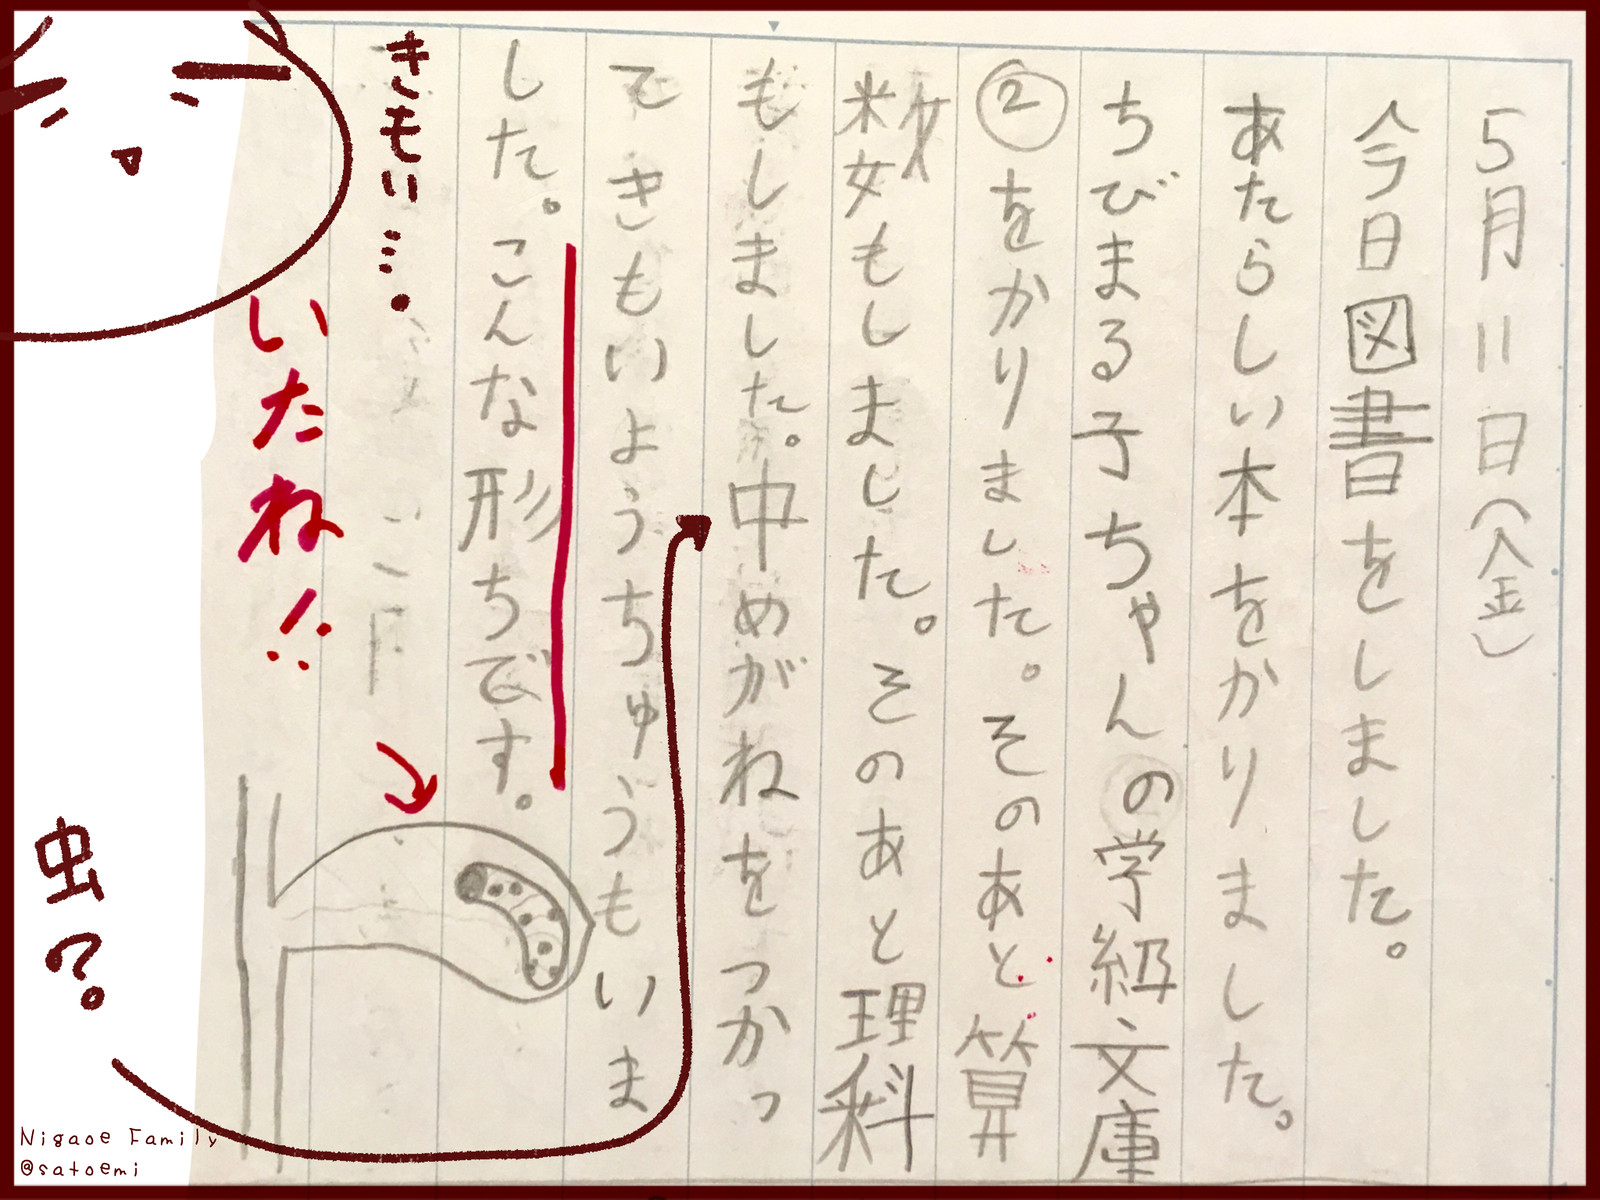 5月11日(金)
今日図書をしました。
あたらしい本をかりました。
ちびまる子ちゃんの学級文庫
②をかりました。そのあと算
数もしました。そのあと理科
もしました。中めがねをつかっ
てきもいようちゅうもいま
した。こんな形ちです。
きもい…。
いたね!!
虫?
Nigaoe Family
@satoemi